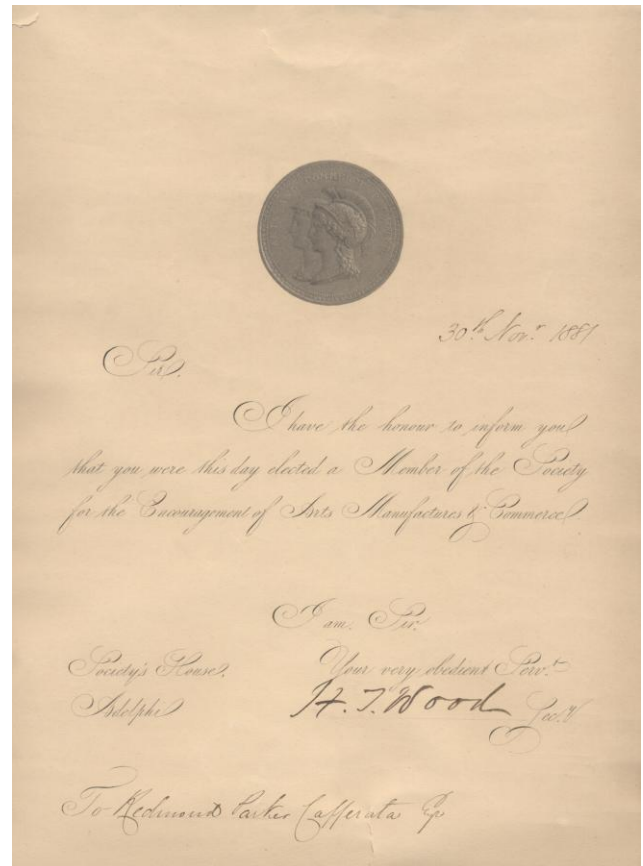 30th Novr. 1881
Sir.
I have the honour to inform you
that you were this day elected a Member of the Society
for the Encouragement of Arts Manufactures & Commerce
I am, Sir.
Society's House.
Your very obedient Servt.
Adelphi
H. T. Wood Secry.
To Redmond Parker Cafferata Esq